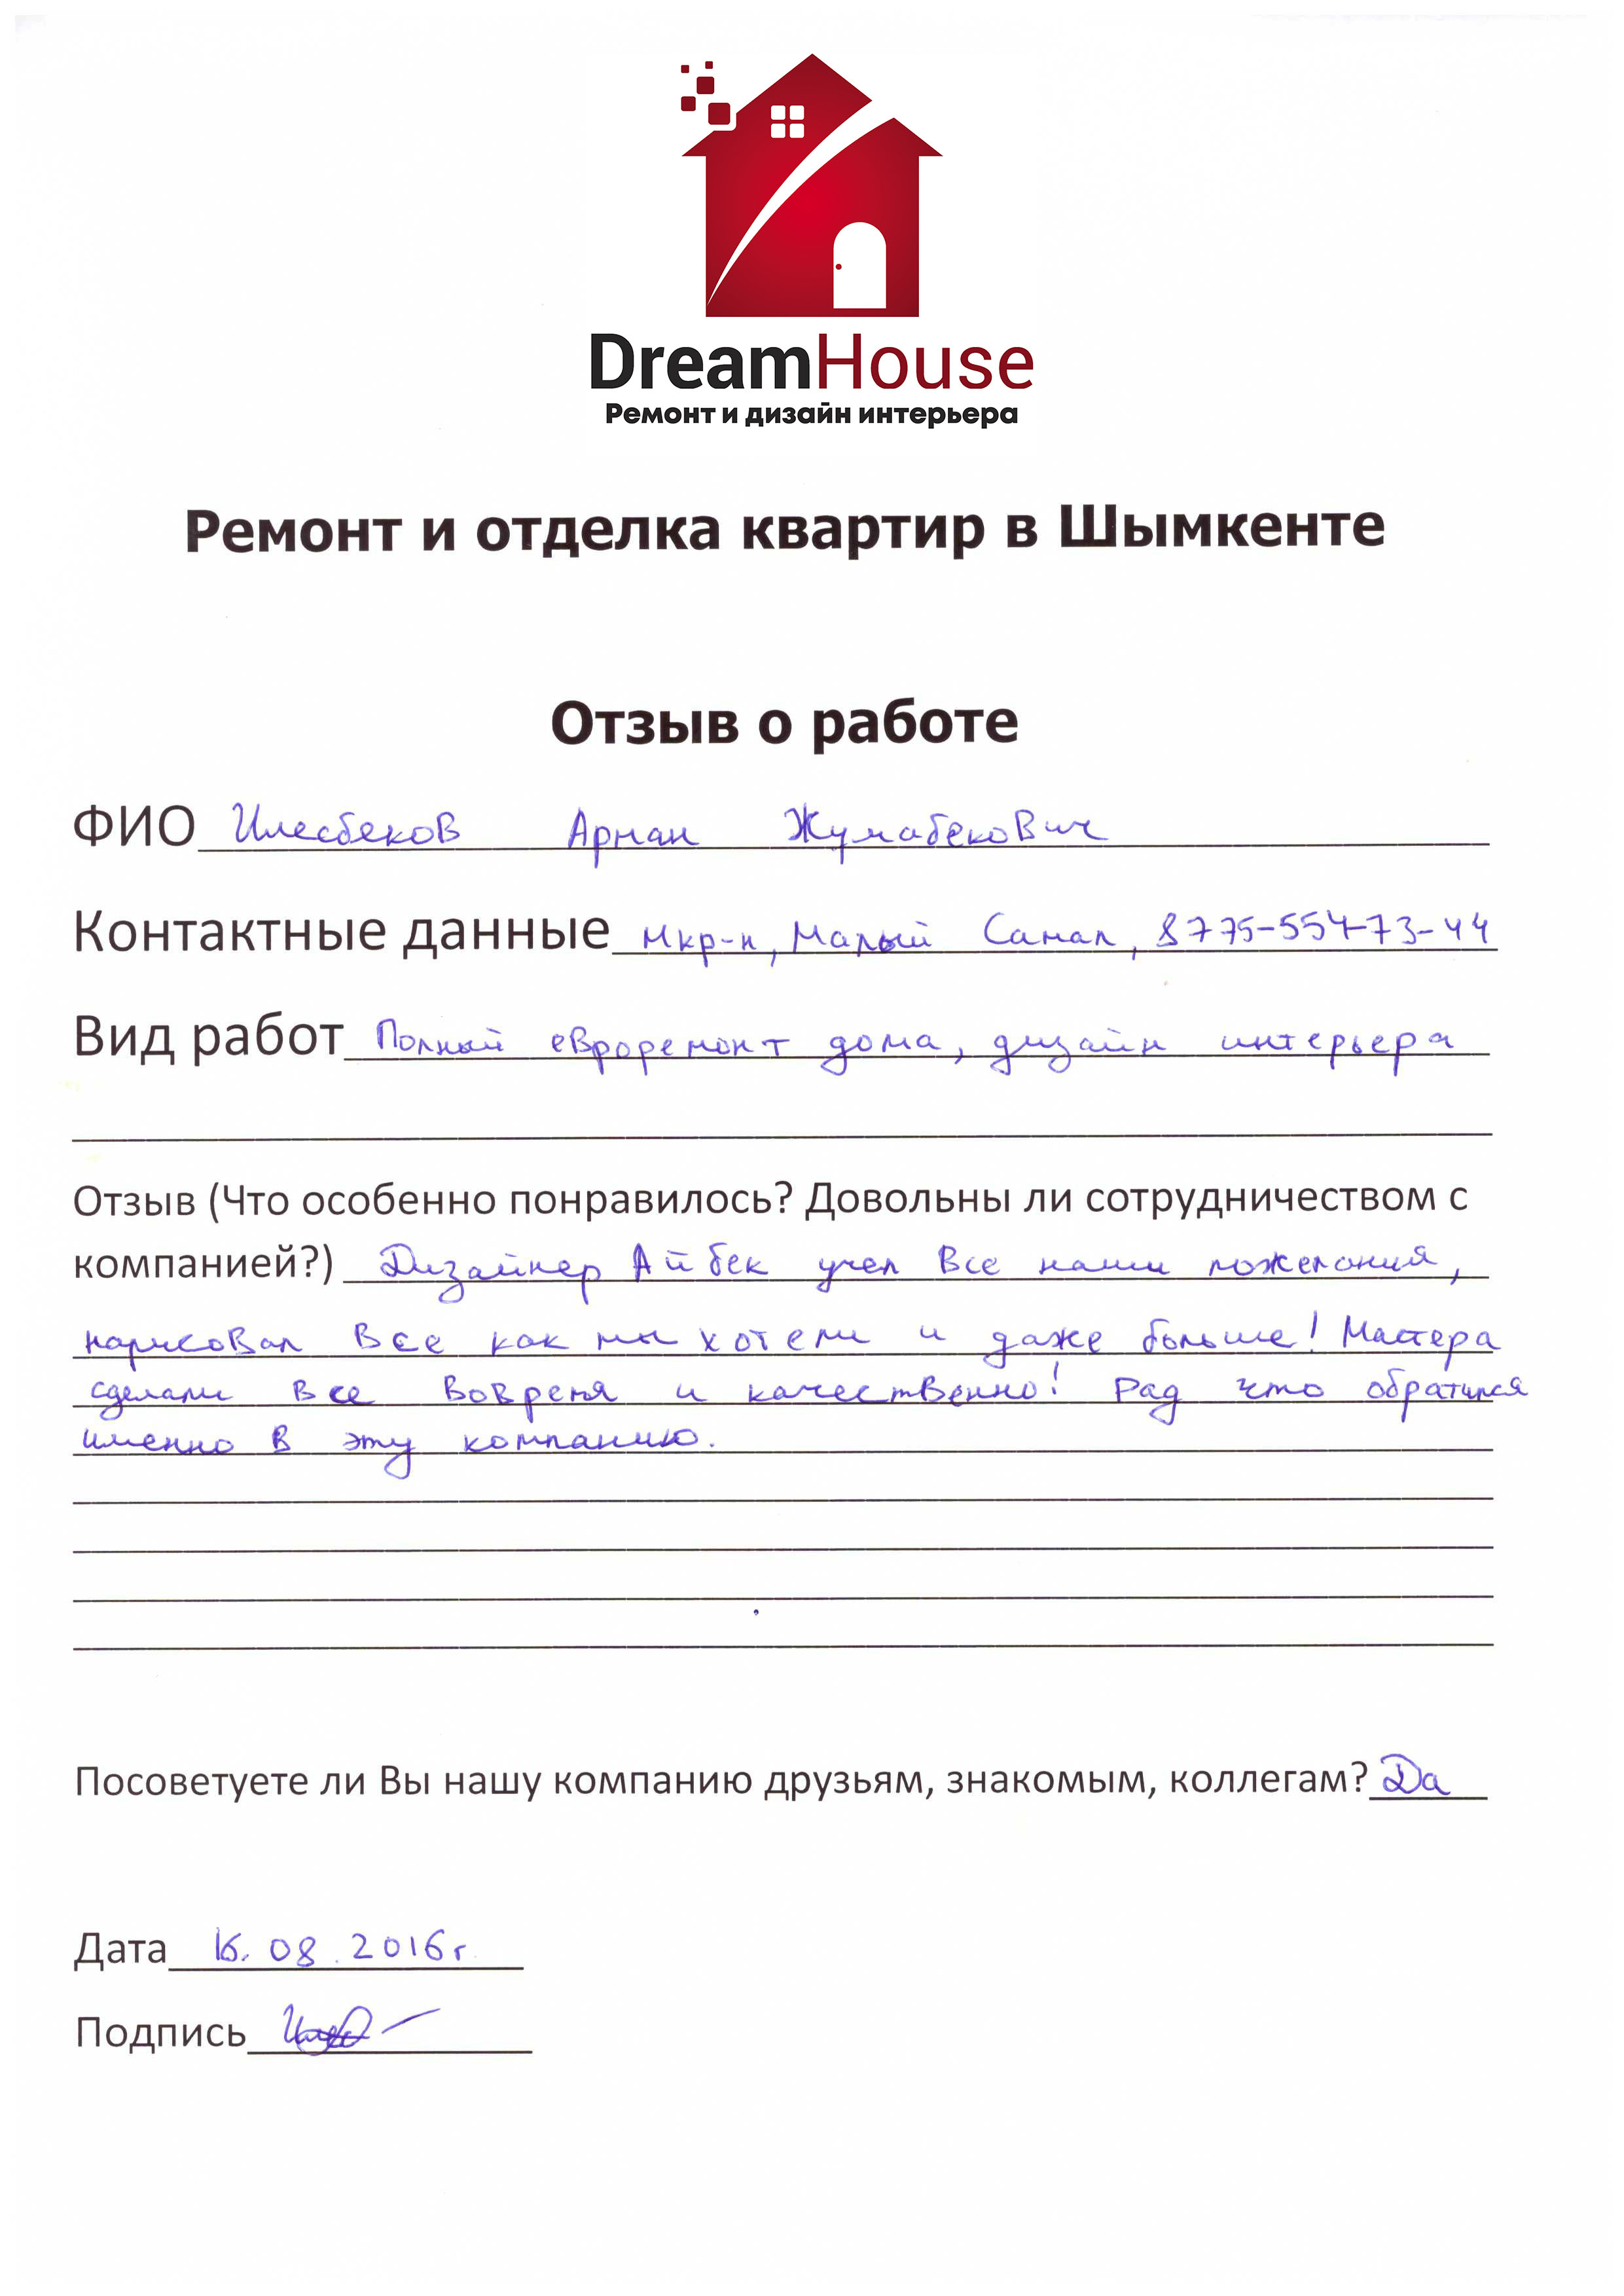 DreamHouse
Ремонт и дизайн интерьера
Ремонт и отделка квартир в Шымкенте
Отзыв о работе
ФИО Илесбеков Арман Жумабекович
Контактные данные мкр-н, Малый Самал, 8775-554-73-44
Вид работ Полный евроремонт дома, дизайн интерьера
Отзыв (Что особенно понравилось? Довольны ли сотрудничеством с
компанией?) Дизайнер Айбек учел все наши пожелания,
нарисовал все как мы хотели и даже больше! Мастера
сделали все вовремя и качественно! Рад что обратился
именно в эту компанию.
Посоветуете ли Вы нашу компанию друзьям, знакомым, коллегам? Да
Дата 16.08.2016г
Подпись